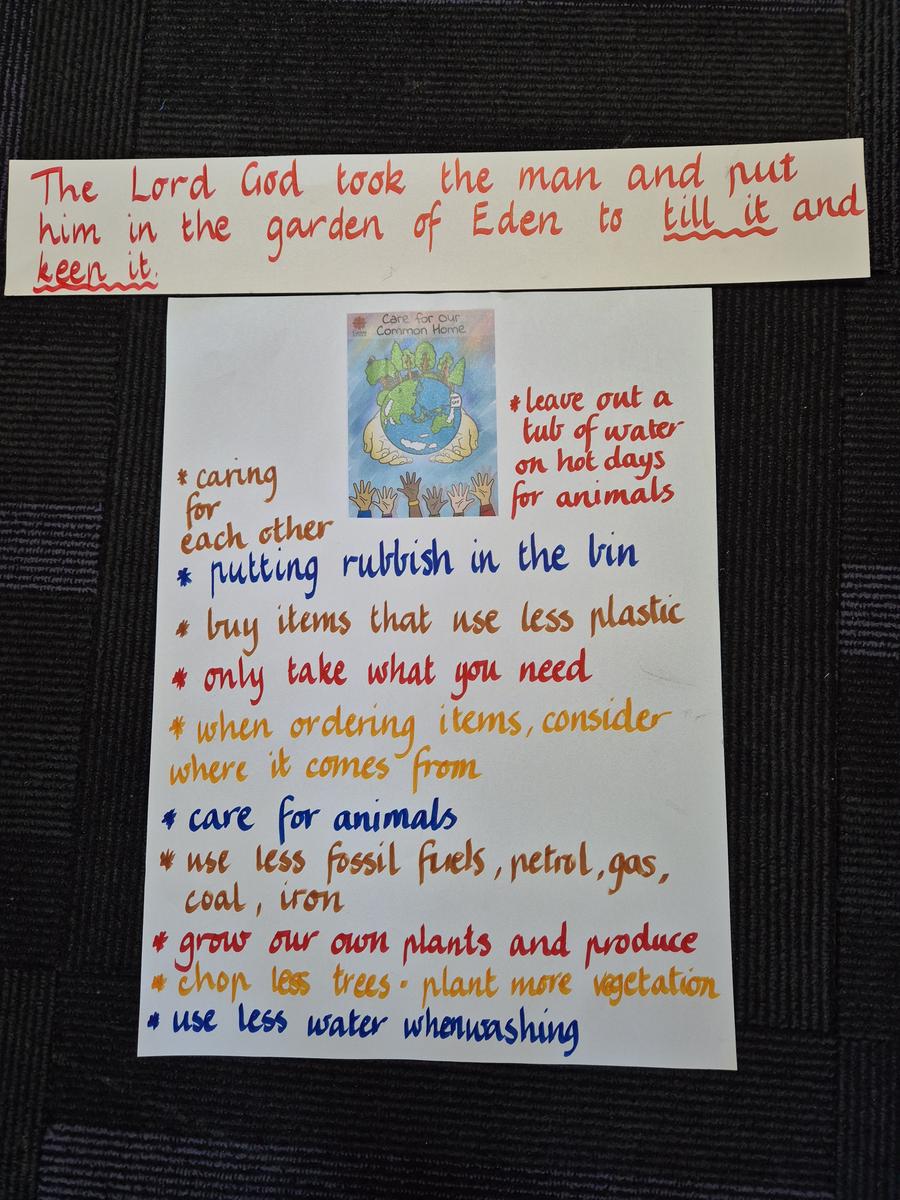 The Lord God took the man and put
him in the garden of Eden to till it and
keep it.
Care for our
Common Home
* leave out a
tub of water
on hot days
for animals
* caring
for
each other
* putting rubbish in the bin
* buy items that use less plastic
* only take what you need
* when ordering items, consider
where it comes from
* care for animals
* use less fossil fuels, petrol, gas,
coal, iron
* grow our own plants and produce
* chop less trees. plant more vegetation
* use less water when washing